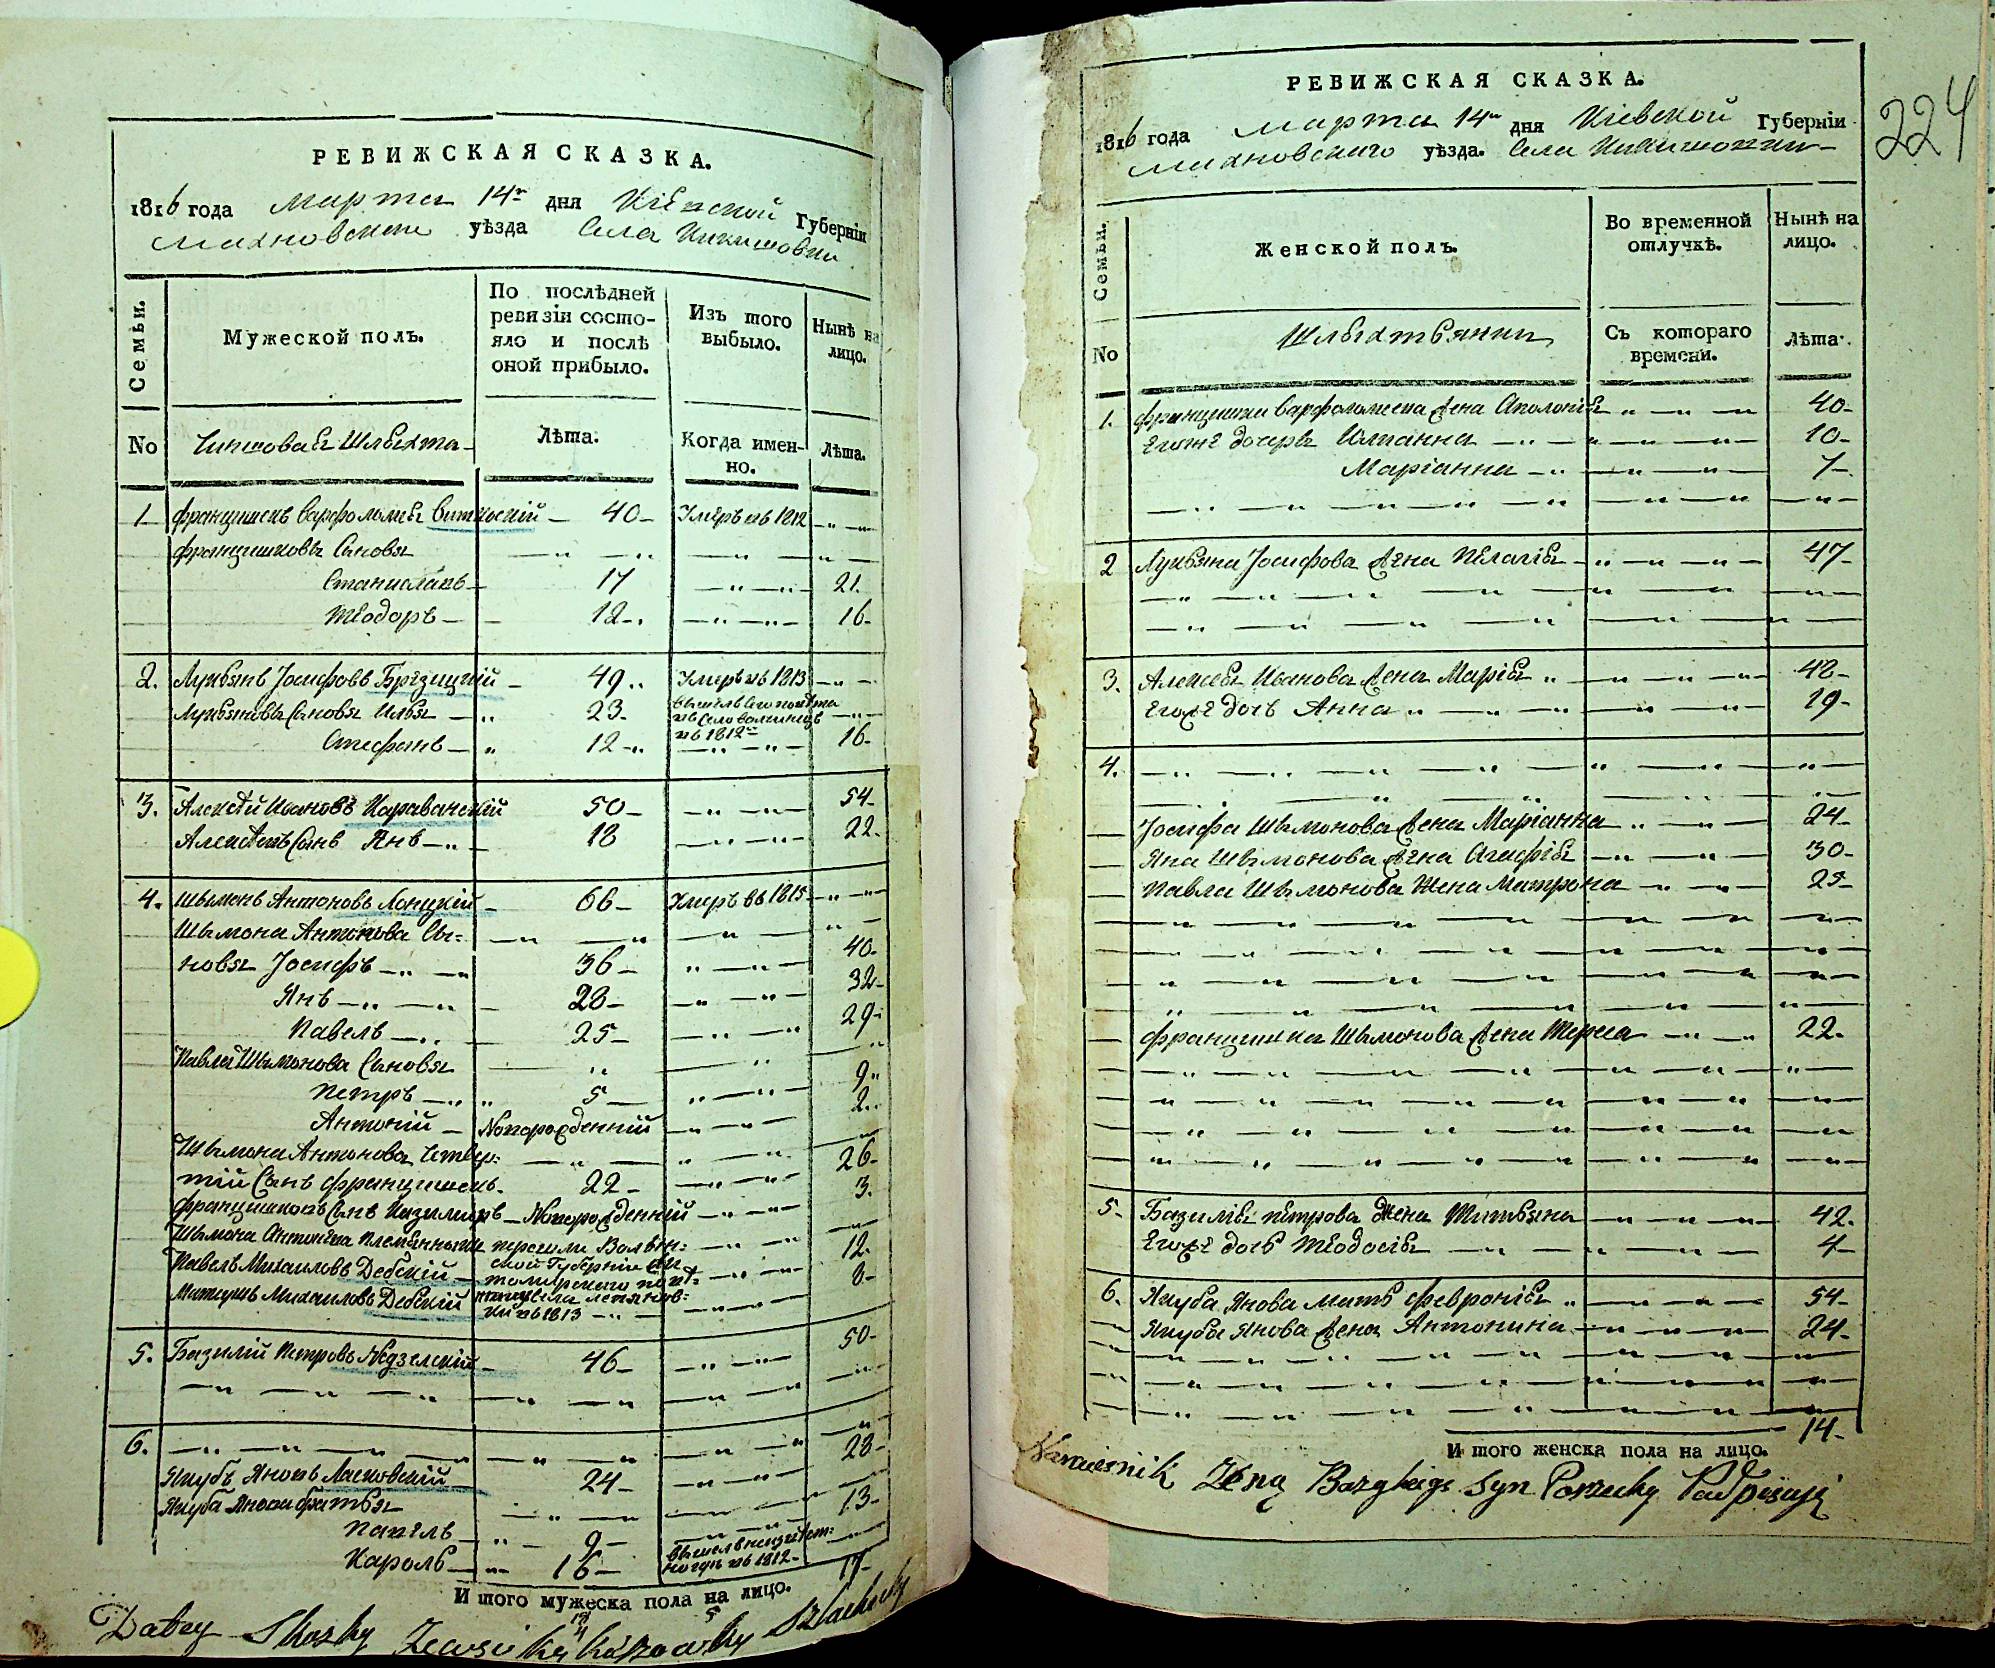 РЕВИЖСКАЯ СКАЗКА.
1816 года Марта 14го дня Кіевской Губерніи
Махновского уѣзда Села
Семьи.
Мужеской полъ.
По послѣдней ревизіи состояло и послѣ оной прибыло.
Изъ того выбыло.
Нынѣ на лицо.
No
Чиншовая Шляхта
Лѣта.
Когда именно.
Лѣта.
1 Францишекъ Варфоломея Витковскій — 40 — Умеръ въ 1812 — „ —
Францишковы Сыновья
Станиславъ — 17 — „ — 21.
Теодоръ — 12 — „ — 16
2. Лукьянъ Іосифовъ Брезицкій — 49 „ Умеръ въ 1813 — „ —
Лукьяновы Сыновья Илья — „ 23 —
въ 1812го
Стефанъ — „ 12 — „ 16
3. Алексѣй Ивановъ Караванскій 50 — „ — 54
Алексѣевъ Сынъ Янъ — „ — 18 — „ — 22
4. Шымонъ Антоновъ Лонцкій — 66 — Умеръ въ 1815 — „ —
Шымона Антонова Сы=
новья Іосифъ — „ — 36 — „ — 40
Янъ — „ — 28 — „ — 32
Павелъ — „ 25 — „ — 29
Павла Шымонова Сыновья
Петръ — „ 5 — „ — 9
Антоній — Новорожденній — „ — 2
Шымона Антонова Четвер=
тій Сынъ Францишекъ — 22 — „ — 26
Францишковъ Сынъ Казимиръ — Новорожденній — „ — 3
Шымона Антонова племянники перешли Волын=
ской Губерніи Жи
Павелъ Михаиловъ Дебскій — томирского повѣ= 12
Матеушъ Михаиловъ Дебскій села 8
въ 1813 — „ —
5. Базилій Петровъ Недзелскій — 46 — „ — 50
6. — „ — „ —
Якубъ Яновъ Ласковскій — 24 — „ — 28
Якуба Янова братья
Павелъ — „ 9 — „ — 13
Кароль — „ 16 —
въ 1812
И того мужеска пола на лицо. 17
РЕВИЖСКАЯ СКАЗКА.
1816 года Марта 14го дня Кіевской Губерніи
Махновского уѣзда. Села
224
Семьи.
Женской полъ.
Во временной отлучкѣ.
Нынѣ на лицо.
No
Шляхтянки
Съ котораго времени.
Лѣта.
1. Францишка Варфоломеева жена Аполонія „ — „ — 40
Егоже дочери Юлианна — „ — 10
Маріанна — „ — 7
2 Лукьяна Іосифова жена Пелагія — „ — 47
3. Алексея Иванова жена Марія „ — 48
Егоже дочь Анна „ — „ — 19
4. — „ — „ —
Іосифа Шымонова жена Маріанна „ — 24
Яна Шымонова жена Агафія — „ — 30
Павла Шымонова жена Матрона — „ — 25
Францишка Шымонова жена Тереса — „ — 22
5. Базилія Петрова жена Татьяна — „ — 42
Егоже дочь Теодосія — „ — 4
6. Якуба Янова мать Февронія „ — 54
Якуба Янова жена Антонина — „ — 24
И того женска пола на лицо. 14